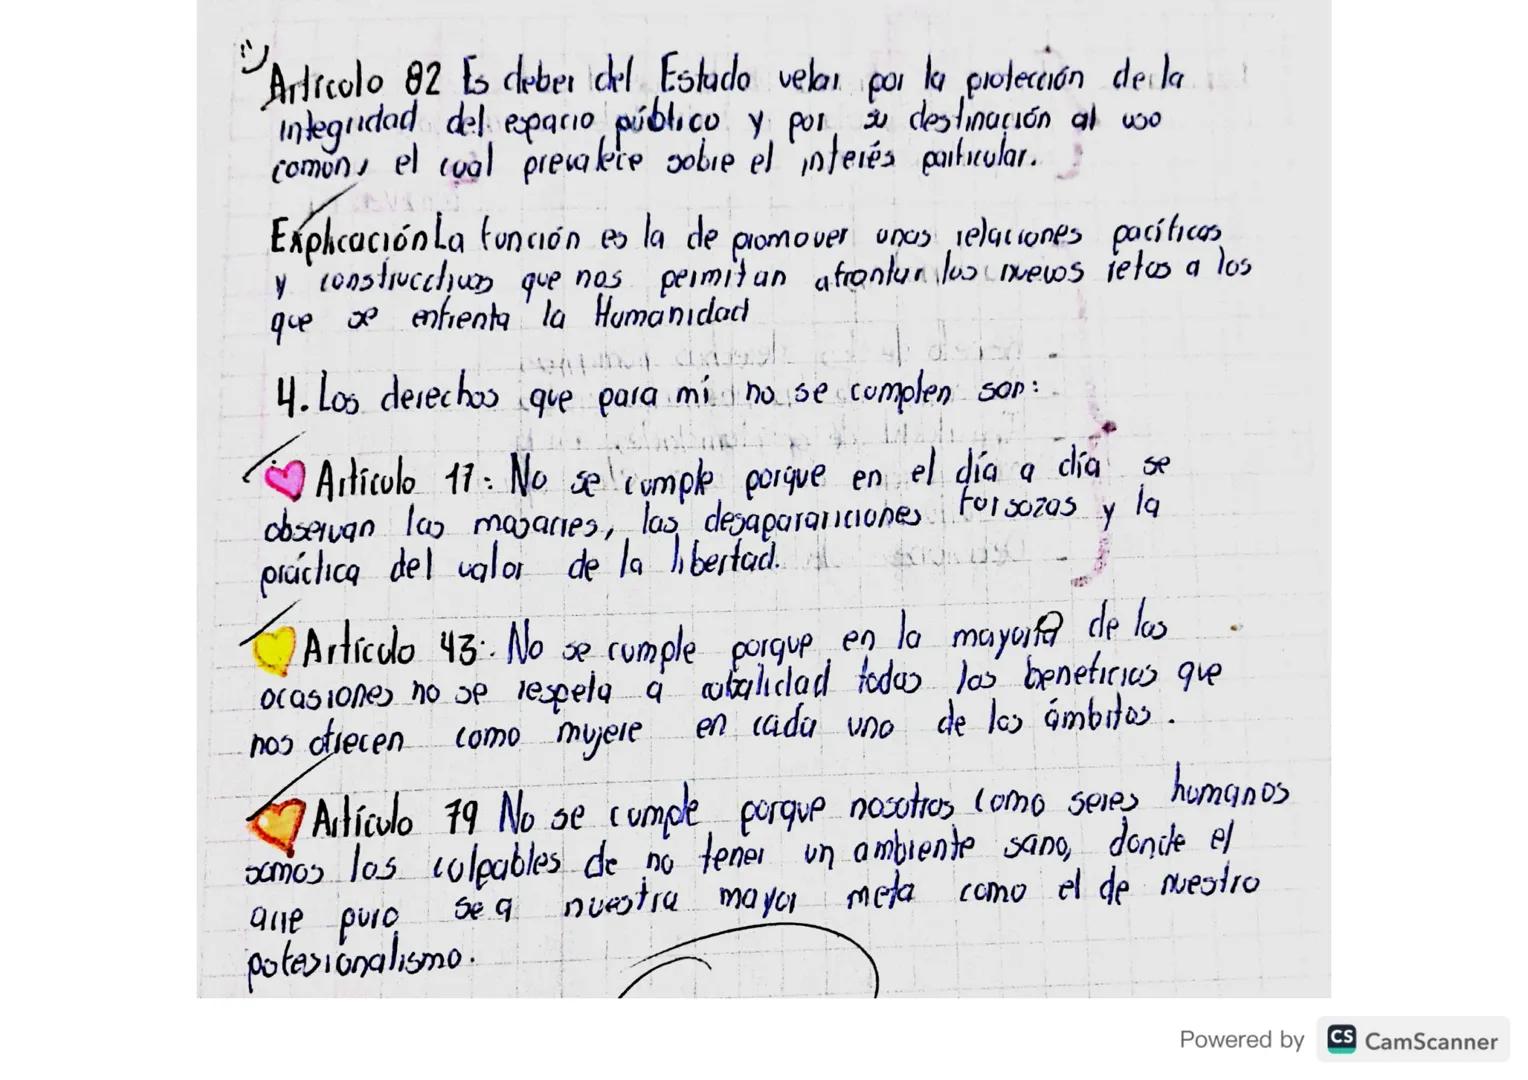 Artículo 82 Es deber del Estado velar por la protección de la
integridad del espacio público y por su destinación al uso
común, el cual prevalece sobre el interés particular.
Explicación La función es la de promover unas relaciones pacíficas
y constructivas que nos permitan afrontar los nuevos retos a los
que se enfrenta la Humanidad
4. Los derechos que para mí no se cumplen son:
Artículo 17: No se cumple porque en el día a día se
observan las masacres, las desaparariciones forsozas y la
práctica del valor de la libertad.
Artículo 43: No se cumple porque en la mayoría de las
ocasiones no se respeta a cabalidad todos los beneficios que
nos ofrecen como mujere en cada uno de los ámbitos.
Artículo 79 No se cumple porque nosotros como seres humanos
somos los culpables de no tener un ambiente sano, donde el
aire puro sea nuestra mayor meta como el de nuestro
potesionalismo.
Powered by CS CamScanner